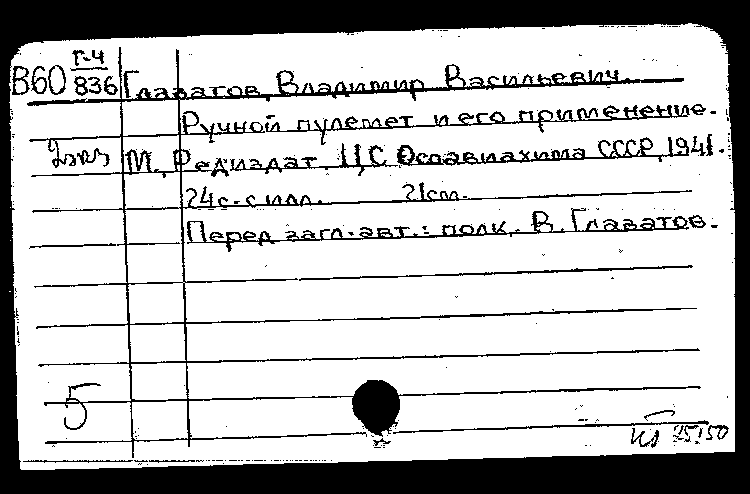 Г-4
В60 836 Главатов, Владимир Васильевич.
Ручной пулемет и его применение.
2 экз М., Редиздат ЦС Осоавиахима СССР, 1941.
24с. с илл. 21см.
Перед загл. авт.: полк. В. Главатов.
5